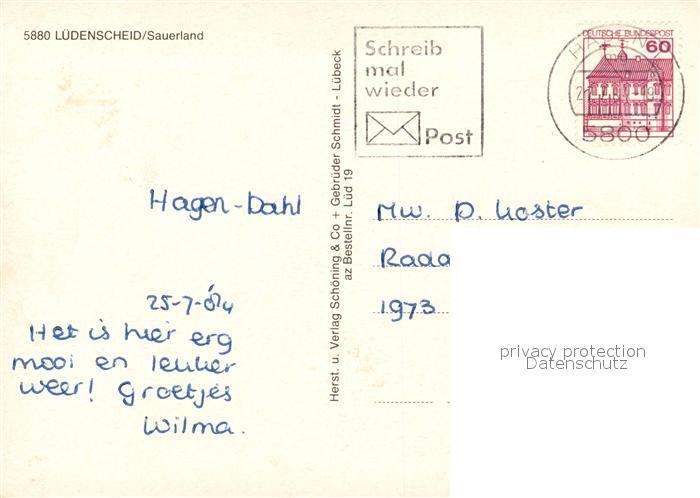 5880 LÜDENSCHEID/Sauerland
Schreib
mal
wieder
Post
HAGEN
5800
DEUTSCHE BUNDESPOST
60
Herst. u. Verlag Schöning & Co + Gebrüder Schmidt - Lübeck
az Bestellnr. Lüd 19
Hagen-Dahl
25-7-84
Het is hier erg
mooi en leuker
weer! Groetjes
Wilma.
Mw. D. Koster
Rada
1973
privacy protection
Datenschutz